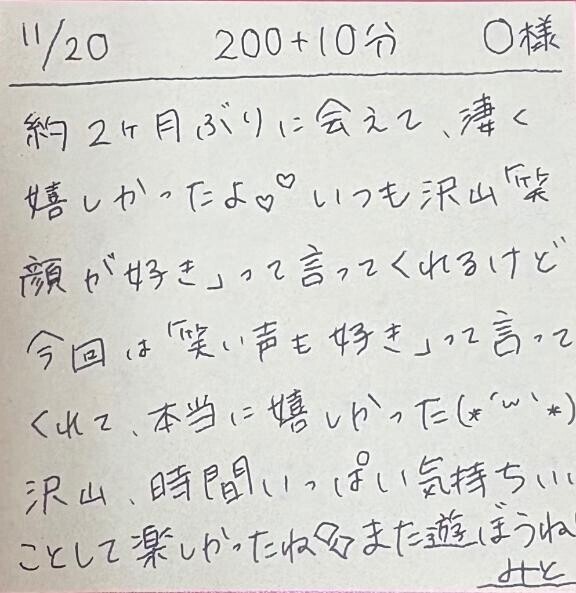 11/20 200+10分 〇様
約2ヶ月ぶりに会えて、凄く
嬉しかったよ♡♡いつも沢山「笑
顔が好き」って言ってくれるけど
今回は「笑い声も好き」って言って
くれて、本当に嬉しかった(*´ω`*)
沢山、時間いっぱい気持ちいい
ことして楽しかったね☆また遊ぼうね!
みと